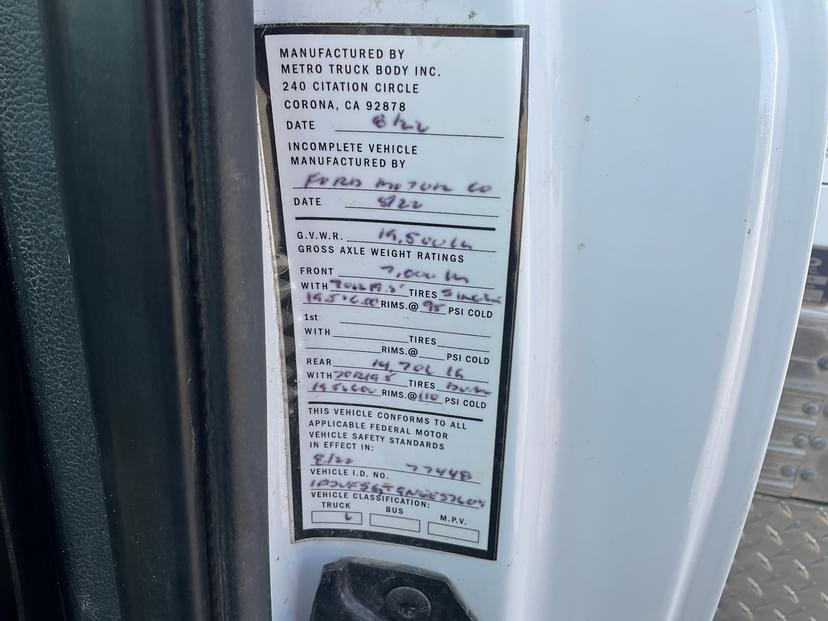 MANUFACTURED BY
METRO TRUCK BODY INC.
240 CITATION CIRCLE
CORONA, CA 92878
DATE 8/22
INCOMPLETE VEHICLE
MANUFACTURED BY
FORD MOTOR CO
DATE 8/22
G.V.W.R. 19,500 lb
GROSS AXLE WEIGHT RATINGS
FRONT 7,000 lb
WITH TIRES SINGLE
19.5x6.00 RIMS.@ 95 PSI COLD
1st
WITH TIRES
RIMS.@ PSI COLD
REAR 14,706 lb
WITH TIRES DUAL
19.5x6.00 RIMS.@ 110 PSI COLD
THIS VEHICLE CONFORMS TO ALL
APPLICABLE FEDERAL MOTOR
VEHICLE SAFETY STANDARDS
IN EFFECT IN:
8/22 77448
VEHICLE I.D. NO.
VEHICLE CLASSIFICATION:
TRUCK BUS M.P.V.